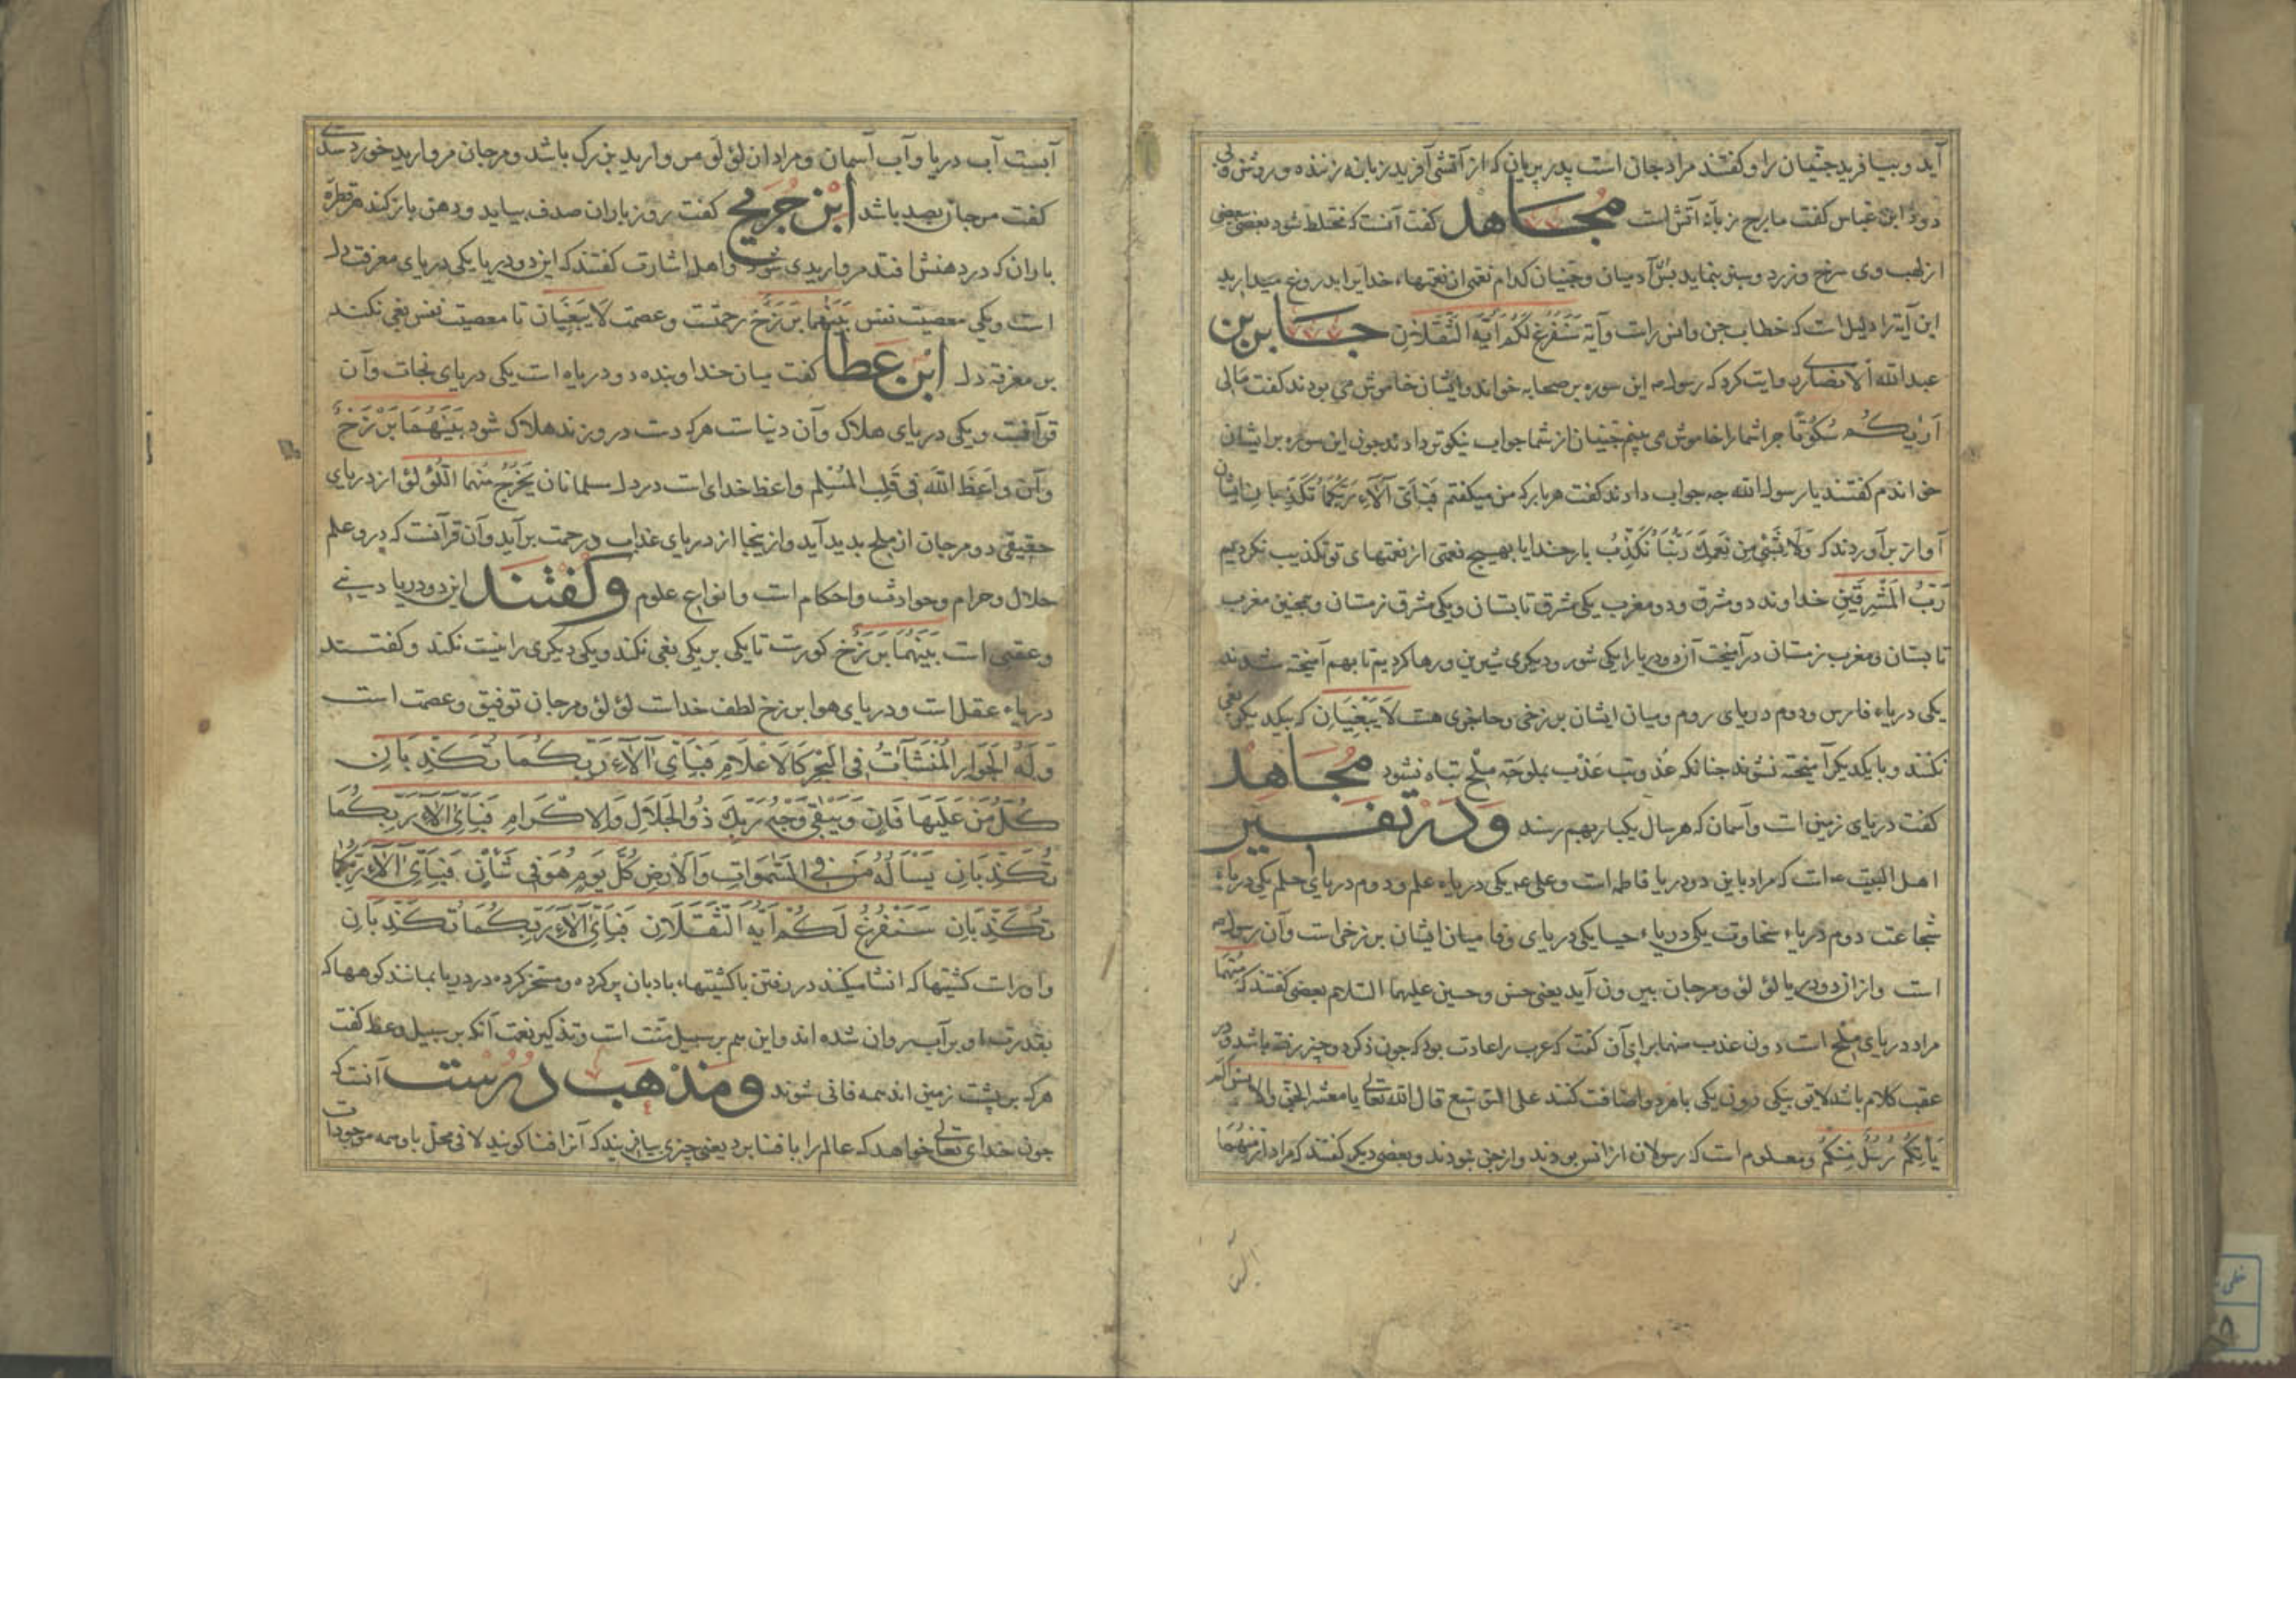 آید و بیافرید جنیان را و گفتند مراد جان است پدر پریان که از آتشی آفرید زبانه زننده و روشن و بی
دود ابن عباس گفت مارج زبانهٔ آتش است مجاهد گفت آنست که مختلط شود بعضی ببعضی
از لهب وی سرخ و زرد و سبز بنماید پس آدمیان و جنیان کدام نعمتی از نعمتهاء خدایرا بدروغ میدارید
این آیة را دلیل است که خطاب جن و انس راست و آیة سَنَفْرُغُ لَكُمْ أَيُّهَ الثَّقَلَانِ جابر بن
عبدالله الانصاری روایت کرد که رسول ص این سوره بر صحابه خواند و ایشان خاموش می بودند گفت مالی
اَرٰیکُم سُکُوتًا چرا شما را خاموش می بینم جنیان از شما جواب نیکوتر دادند چون این سوره بر ایشان
خواندم گفتند یا رسول الله چه جواب دادند گفت هر بار که من میگفتم فَبِأَيِّ آلَاءِ رَبِّكُمَا تُكَذِّبَانِ ایشان
آواز برآوردند که وَلَا بِشَيْءٍ مِن نِعَمِكَ رَبَّنَا نُكَذِّبُ بار خدایا بهیچ نعمتی از نعمتهای تو تکذیب نکردیم
رَبُّ الْمَشْرِقَيْنِ خداوند دو مشرق و دو مغرب یکی مشرق تابستان و یکی مشرق زمستان و همچنین مغرب
تابستان و مغرب زمستان درآمیخت آن دو دریا را یکی شور و دیگری شیرین و رها کردیم تا بهم آمیخته شدند
یکی دریاء فارس و دوم دریای روم و میان ایشان برزخی و حاجزی هست لَا يَبْغِيَانِ که بیکدیگر بغی
نکنند و با یکدیگر آمیخته نشوند چنانکه عذوبت عذب بملوحة ملح تباه نشود مجاهد
گفت دریای زمین است و آسمان که هر سال یکبار بهم رسند و در تفسیر
اهل البیت ع است که مراد باین دو دریا فاطمه است و علی ع یکی دریاء علم و دوم دریای حلم یکی دریاء
شجاعت دوم دریاء سخاوت یکی دریاء حیا یکی دریای وفا میان ایشان برزخی است و آن رسول ص
است و از آن دو دریا لؤلؤ و مرجان بیرون آید یعنی حسن و حسین علیهما السلام بعضی گفتند که مِنْهُمَا
مراد دریای ملح است دون عذب منهما برای آن گفت که عرب را عادت بود که چون ذکر دو چیز رفته باشد و در
عقب کلام باشد لایق بیکی دون یکی با هر دو اضافت کنند علی التبع قال الله تعالی یا معشر الجن والانس الم
يَأْتِكُمْ رُسُلٌ مِنْكُمْ و معلوم است که رسولان از انس بودند و از جن نبودند و بعضی دیگر گفتند که مراد از مِنْهُمَا
آبست آب دریا و آب آسمان و مراد از لؤلؤ مروارید بزرگ باشد و مرجان مروارید خورد سدی
گفت مرجان بسد باشد ابن جریج گفت روز باران صدف بیاید و دهن باز کند هر قطرهٔ
باران که در دهنش افتد مرواریدی شود و اهل اشارت گفتند که این دو دریا یکی دریای معرفت دل
است و یکی معصیت نفس بَيْنَهُمَا بَرْزَخٌ رحمتست و عصمت لَا يَبْغِيَانِ تا معصیت نفس بغی نکند
بر معرفة دل ابن عطا گفت میان خدا و بنده دو دریاه است یکی دریای نجات و آن
قرآنست و یکی دریای هلاک و آن دنیاست هر که دست درو زند هلاک شود بَيْنَهُمَا بَرْزَخٌ
و آن وَاعِظُ اللّٰهِ فِي قَلْبِ الْمُسْلِمِ واعظ خدای است در دل مسلمانان يَخْرُجُ مِنْهُمَا اللُّؤْلُؤُ از دریای
حقیقی دو مرجان از ملح بدید آید و از ینجا از دریای عذاب و رحمت برآید و آن قرآنست که درو علم
حلال و حرام و حوادث و احکام است و انواع علوم و گفتند این دو دریا دینی
و عقبی است بَيْنَهُمَا بَرْزَخٌ کورست تا یکی بر یکی بغی نکند و یکی دیگری را نیست نکند و گفتند
دریاء عقل است و دریای هوا برزخ لطف خداست لؤلؤ و مرجان توفیق و عصمت است
وَلَهُ الْجَوَارِ الْمُنْشَآتُ فِي الْبَحْرِ كَالْأَعْلَامِ فَبِأَيِّ آلَاءِ رَبِّكُمَا تُكَذِّبَانِ
كُلُّ مَنْ عَلَيْهَا فَانٍ وَيَبْقَى وَجْهُ رَبِّكَ ذُو الْجَلَالِ وَالْإِكْرَامِ فَبِأَيِّ آلَاءِ رَبِّكُمَا
تُكَذِّبَانِ يَسْأَلُهُ مَنْ فِي السَّمٰوَاتِ وَالْأَرْضِ كُلَّ يَوْمٍ هُوَ فِي شَأْنٍ فَبِأَيِّ آلَاءِ رَبِّكُمَا
تُكَذِّبَانِ سَنَفْرُغُ لَكُمْ أَيُّهَ الثَّقَلَانِ فَبِأَيِّ آلَاءِ رَبِّكُمَا تُكَذِّبَانِ
و او راست کشتیها که انشا میکنند در رفتن یا کشتیهاء بادبان برکرده و مسخر کرده در دریا بمانند کوهها که
بقدرت او بر آب روان شده اند و این هم بر سبیل منت است و تذکیر نعمت آنکه بر سبیل وعظ گفت
هر که بر پشت زمین اند همه فانی شوند و مذهب درست آنست که
چون خدای تعالی خواهد که عالم را با فنا برد یعنی چیزی بیافریند که آنرا فنا گویند لا فی محل با وی همه موجودات